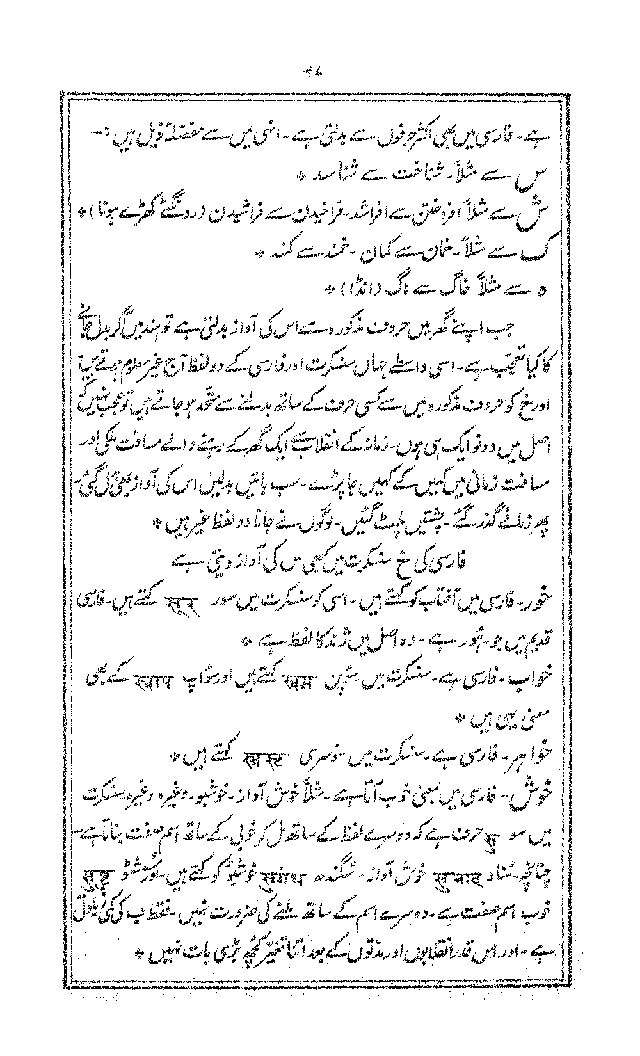 ہے۔ فارسی میں بھی اکثر حرفوں سے بدلتی ہے۔ انہی میں سے مفصلۂ ذیل ہیں :-
س سے مثلاً۔ شناخت سے شناسد *
ش سے مثلاً افراختن سے افراشد۔ فراخیدن سے فراشیدن (رونگٹے کھڑے ہونا) *
ک سے مثلاً۔ خان سے کمان۔ خمند سے کمند *
ہ سے مثلاً خاگ سے ہاگ (انڈا) *
جب اپنے گھر میں حروف مذکورہ سے اس کی آواز بدلتی ہے تو ہند میں آکر بدل جانے
کا کیا تعجب ہے۔ اسی واسطے جہاں سنسکرت اور فارسی کے دو لفظ آج غیر معلوم ہوتے ہیں
اور خ کو حروف مذکورہ میں سے کسی حرف کے ساتھ بدلنے سے متحد ہو جاتے ہیں تو عجب نہیں کہ
اصل میں دونو ایک ہی ہوں۔ زمانہ کے انقلاب سے ایک گھر کے رہنے والے مسافت مکانی اور
مسافت زمانی میں کہیں کے کہیں جا پڑے۔ سب باتیں بدلیں اس کی آواز بھی بدل گئی۔
پھر زمانے گذر گئے۔ پشتیں پلٹ گئیں۔ لوگوں نے جانا دو لفظ غیر ہیں *
فارسی کی خ سنسکرت میں کبھی س کی آواز دیتی ہے
خور۔ فارسی میں آفتاب کو کہتے ہیں۔ اسی کو سنسکرت میں سور सूर कہتے ہیں۔ فارسی
قدیم میں جو۔ ہور ہے۔ وہ اصل میں ژند کا لفظ ہے *
خواب۔ فارسی ہے۔ سنسکرت میں سْوَپن स्वप्न کہتے ہیں اور سواپ स्वाप کے بھی
معنی یہی ہیں *
خواہر۔ فارسی ہے۔ سنسکرت میں سوسری स्वसृ کہتے ہیں *
خوش۔ فارسی میں بمعنی خوب آتا ہے۔ مثلاً خوش آواز۔ خوشبو۔ وغیرہ وغیرہ سنسکرت
میں سو सु حرف ہے کہ دوسرے لفظ کے ساتھ مل کر خوبی کے ساتھ اسم صفت بناتا ہے۔
چنانچہ۔ سُناد सुनाद خوش آواز۔ سُگندھ सुगंध خوشبو کو کہتے ہیں۔ سُوشٹو सुष्टु
خوب اسم صفت ہے۔ دوسرے اسم کے ساتھ ملنے کی ضرورت نہیں۔ فقط ب کی کمی
ہے۔ اور اس قدر انقلابوں اور مدتوں کے بعد اتنا تغیر کچھ بڑی بات نہیں *